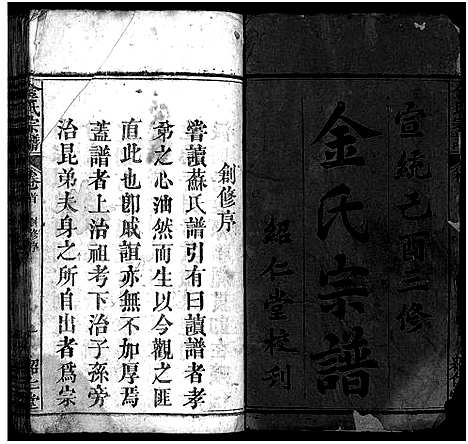 宣統己酉二修
金氏宗譜
紹仁堂校刊
創修序
嘗讀蘇氏譜引有曰讀譜者孝
弟之心油然而生以今觀之匪
直此也卽戚誼亦無不加厚焉
蓋譜者上治祖考下治子孫旁
治昆弟夫身之所自出者爲宗
金氏宗譜
卷首
創修序
紹仁堂